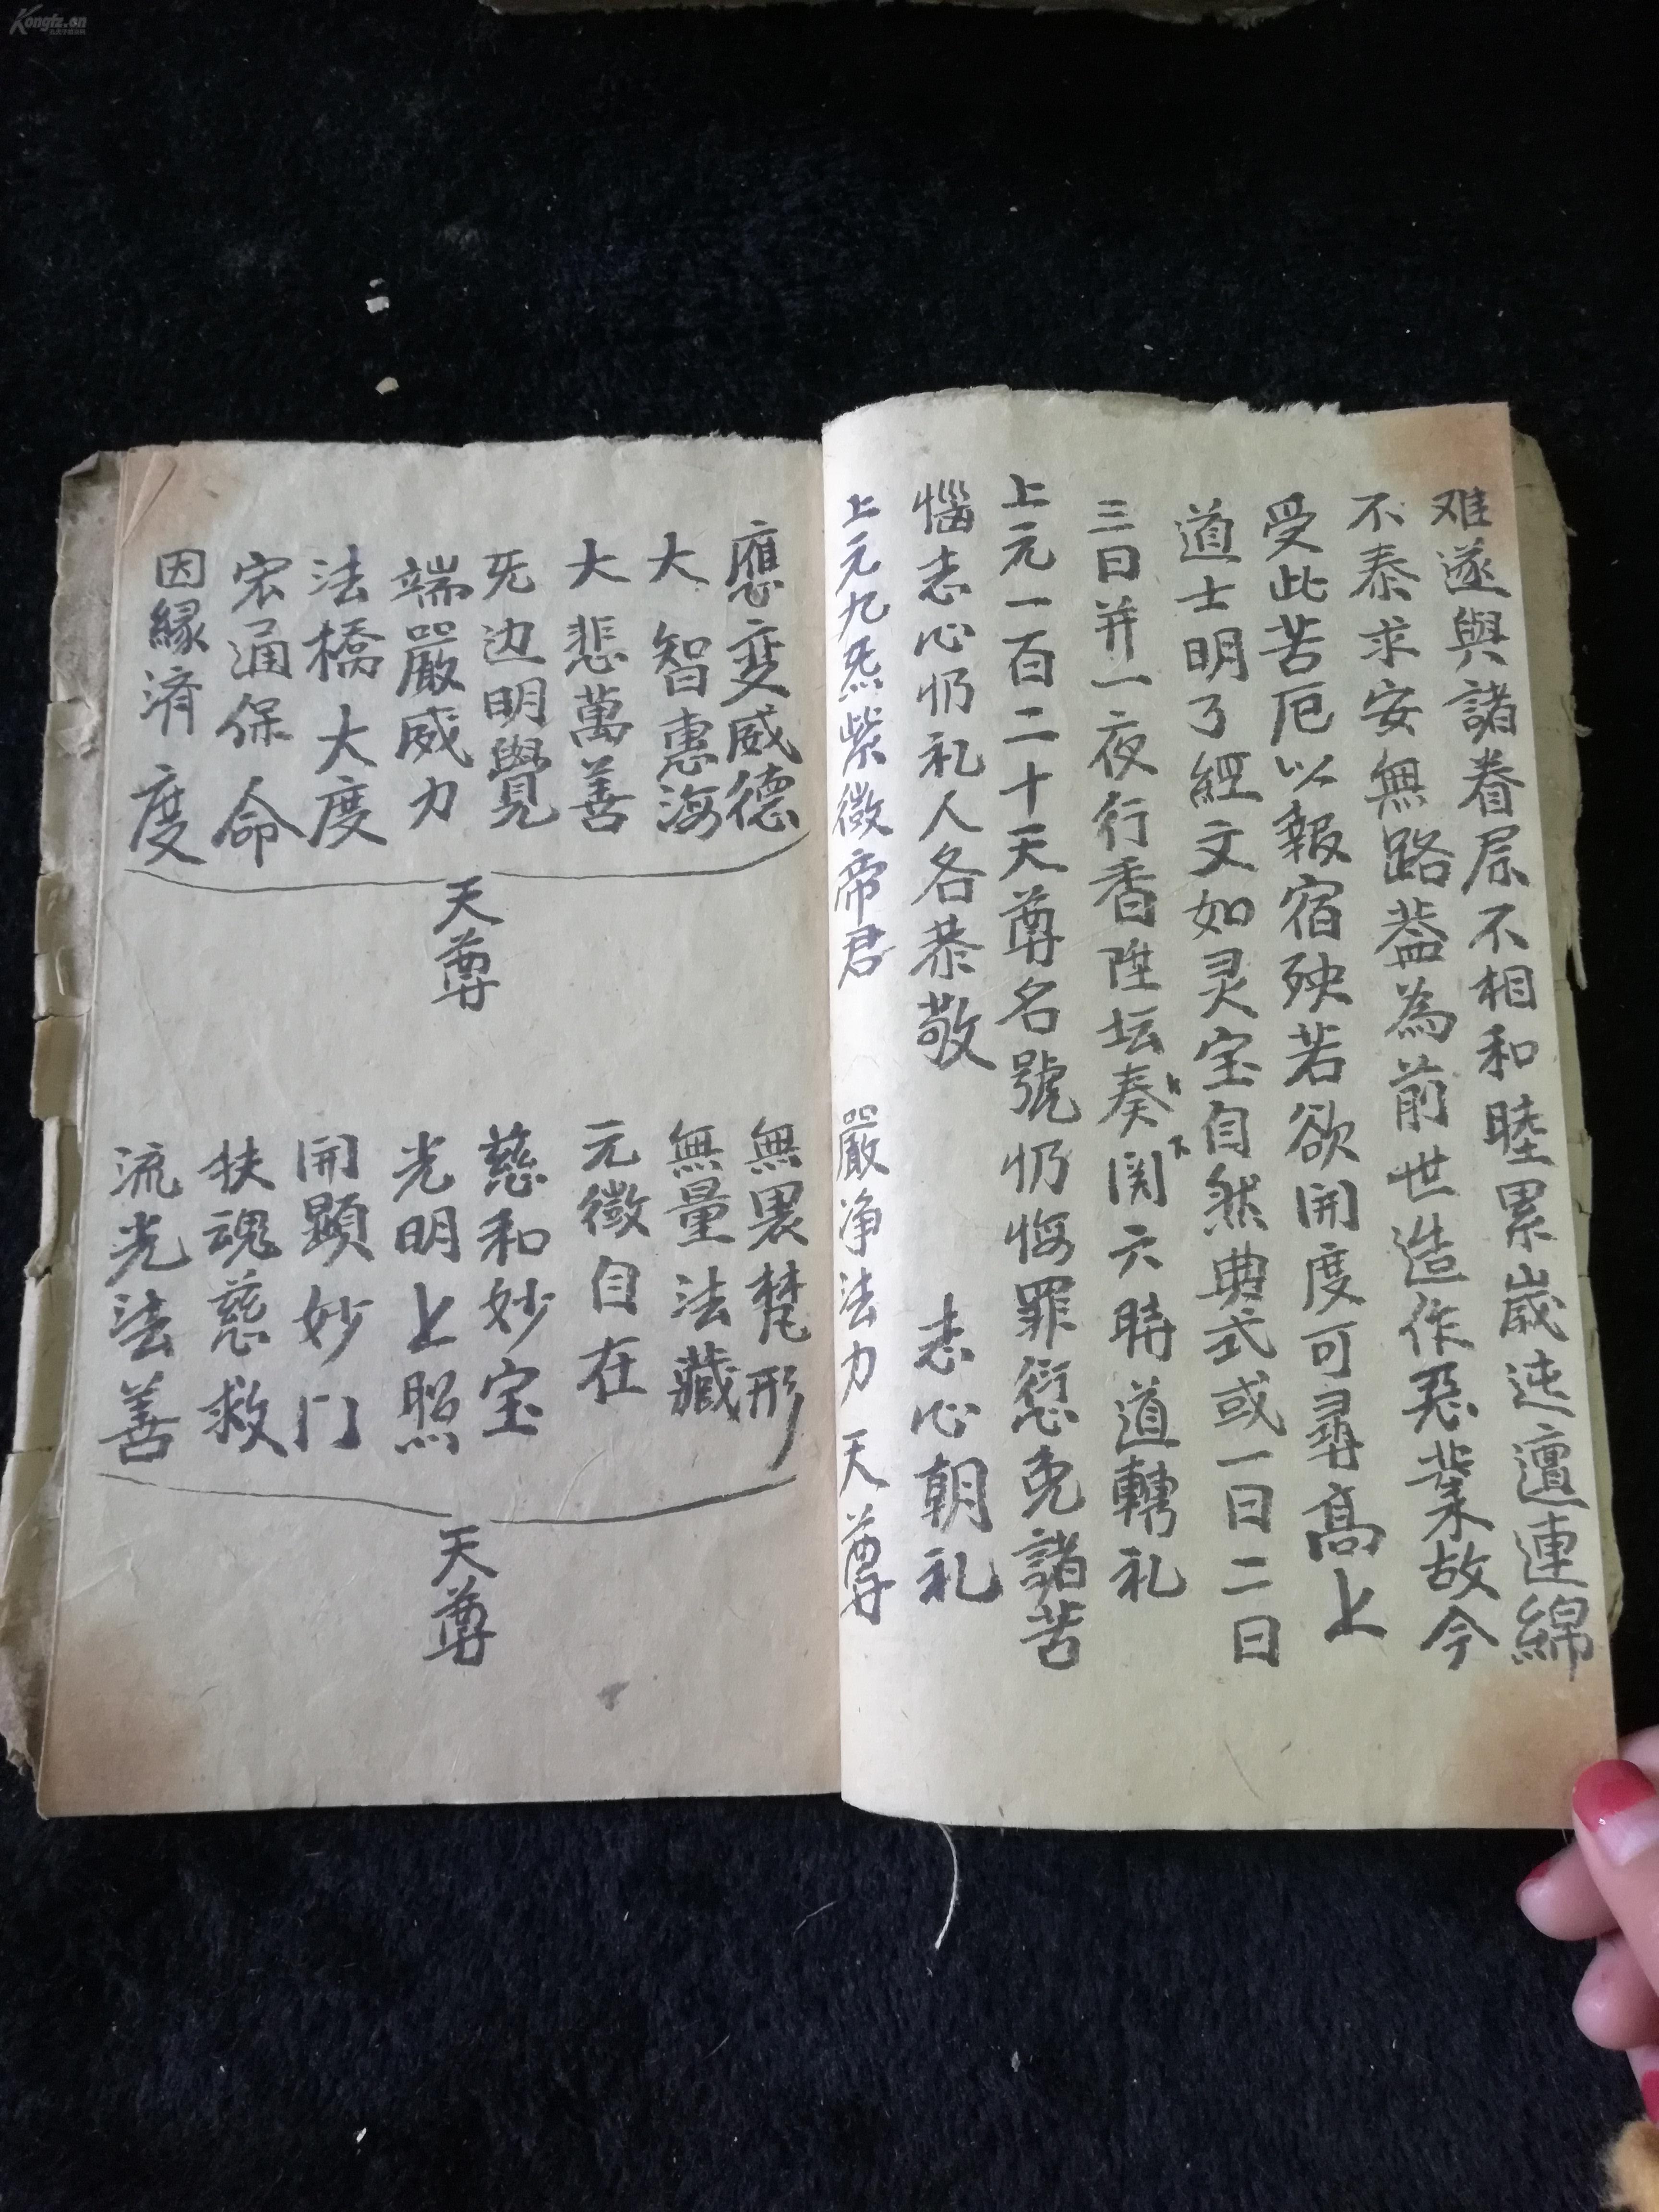 Kongfz.cn
难遂與諸眷层不相和睦累嵗迍邅連綿
不泰求安無路葢為前世造作惡業故今
受此苦厄以報宿殃若欲開度可尋髙上
道士明了經文如灵宝自然典式或一日二日
三日并一夜行香陞坛奏関六時道轉礼
上元一百二十天尊名號忏悔罪愆免諸苦
惱志心忏礼人各恭敬 志心朝礼
上元九炁紫微帝君 嚴净法力天尊
應变威德 無裏梵形
大智惠海 無量法藏
大悲萬善 元微自在
旡边明覺 慈和妙宝
端嚴威力 光明上照
法橋大度 開顕妙门
宏通保命 扶魂慈救
因縁済度 流光法善
天尊 天尊